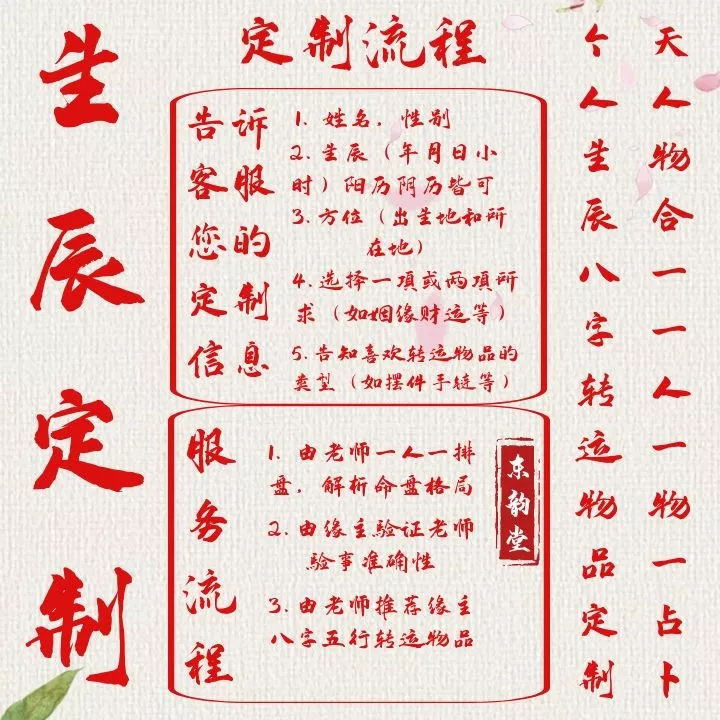 生辰定制
定制流程
告诉
客服
您的
定制
信息
1. 姓名，性别
2. 生辰（年月日小
时）阳历阴历皆可
3. 方位（出生地和所
在地）
4. 选择一項或两項所
求（如姻缘财运等）
5. 告知喜欢转运物品的
类型（如摆件手链等）
服务流程
1. 由老师一人一排
盘，解析命盘格局
2. 由缘主验证老师
验事准确性
3. 由老师推荐缘主
八字五行转运物品
东韵堂
天人物合一一人一物一占卜
个人生辰八字转运物品定制